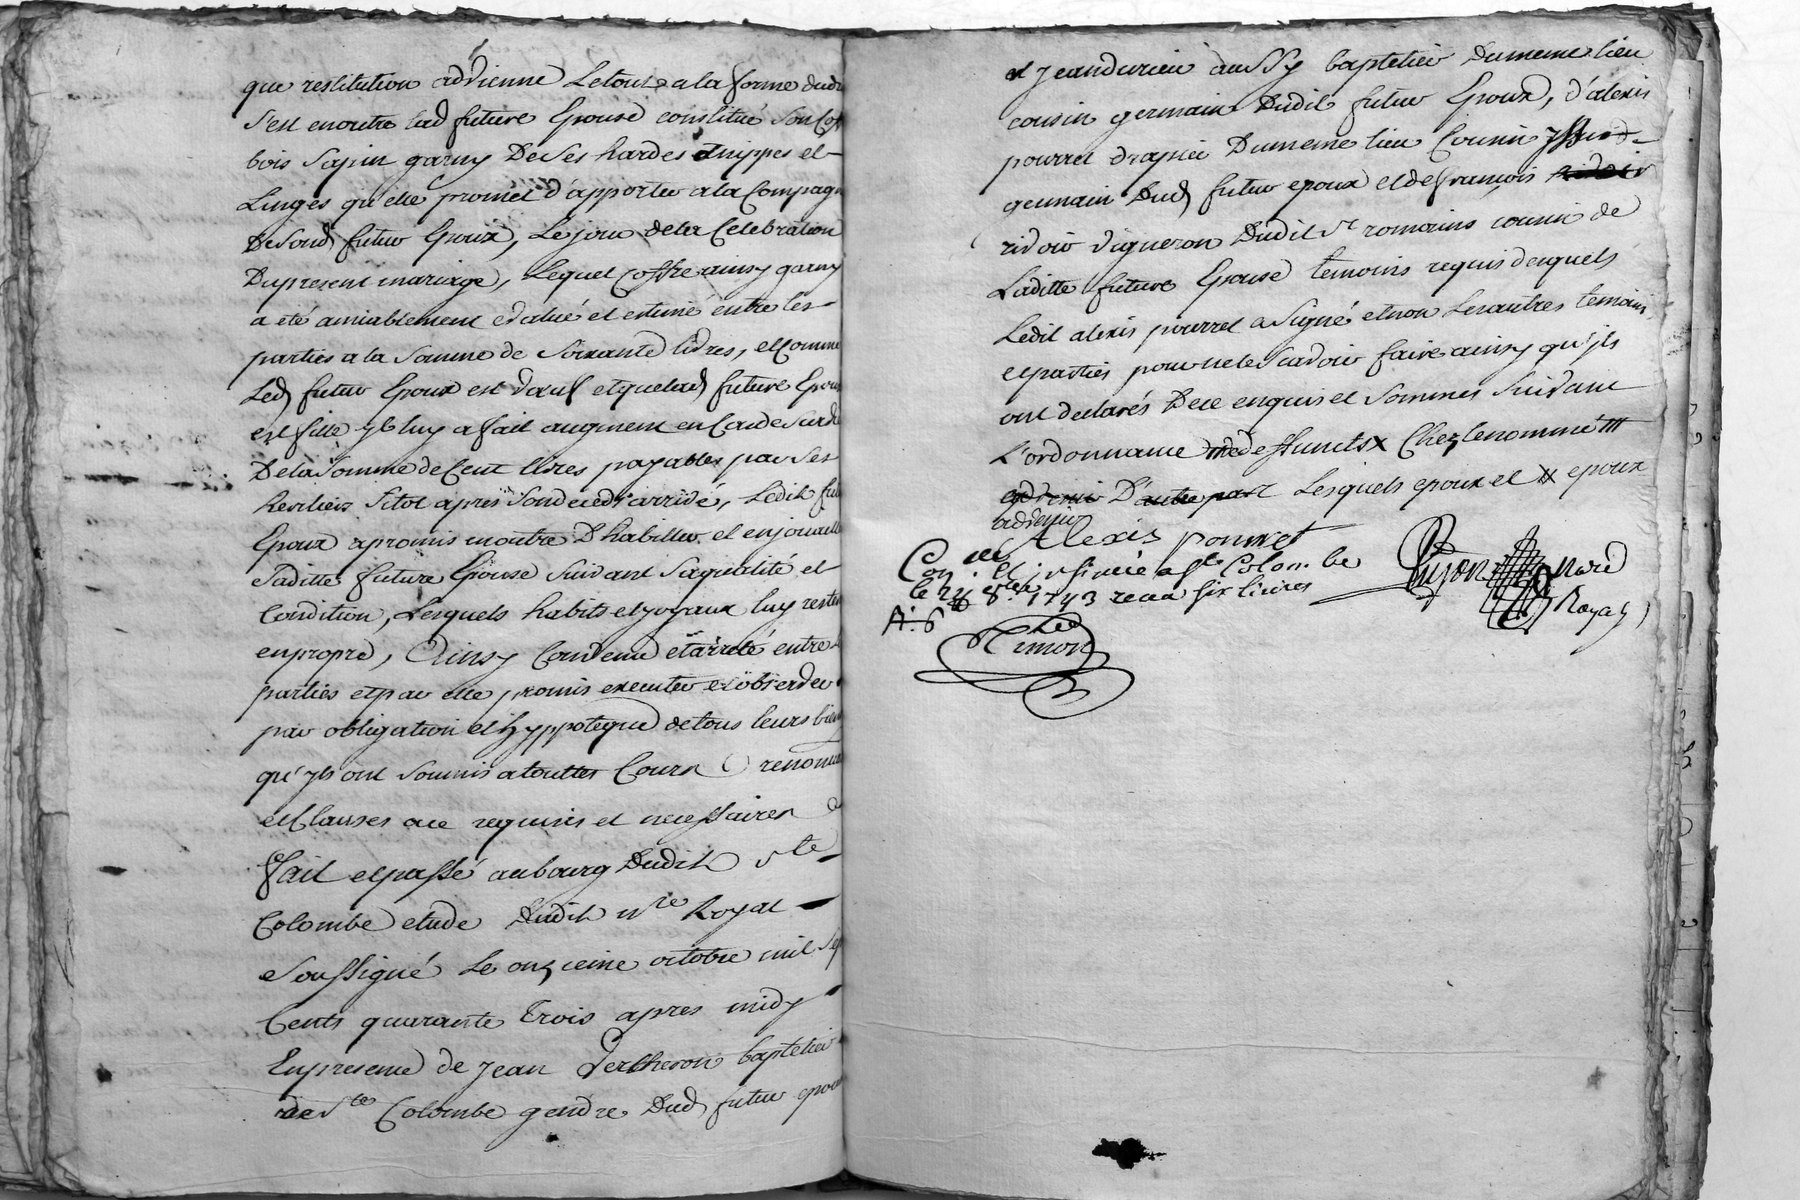 que restitution advienne Letout a la forme dudr
S'est enoutre lad future Epouse constitué Son Cof
bois Sapin garny De Ses hardes Nippes et
Linges qu'elle promet d'apporter a la Compagn
De Sond futur Epoux, Le jour de la Celebration
Du present mariage, Lequel Coffre ainsy garny
a eté amiablement evalué et estimé entre les
parties a la Somme de Soixante livres, et Comme
Led futur Epoux est veuf et que lad future Epou
est fille il luy a fait augment en Cas de Survie
De la Somme de Cent livres payables par Ses
heritiers Sitot apres Son deced arrivé, Ledit fut
Epoux a promis en outre D'habiller et enjoualler
Saditte future Epouse Suivant Sa qualité et
Condition, Lesquels habits et joyaux luy restero
en propre, Ainsy Convenu et arreté entre Les
parties et par elle promis executer et observer
par obligation et hyppoteque de tous leurs biens
qu'ils ont Soumis a touttes Cours renoncia
et Clauses a ce requises et necessaires
fait et passé au bourg Dudit Ste
Colombe etude Dudit nre Royal
Soussigné Le onzieme octobre mil Sept
Cents quarante Trois apres midy
En presence de Jean Vertheron baptelier
de Ste Colombe gendre Dud futur epoux
et Jean durieu aussy baptelier Du meme lieu
cousin germain Dudit futur Epoux, d'alexis
pourret drapier Du meme lieu Cousin Issu de
germain Dud futur epoux et de françois
ridoir Vigneron Dudit St romains cousin de
Laditte future Epouse temoins requis desquels
Ledit alexis pourret a Signé et non Les autres temoins
et parties pour ne le Scavoir faire ainsy qu'ils
ont declarés De ce enquis et Sommés Suivant
L'ordonnance Chez le nommé
D'autre part Lesquels epoux et epoux
Alexis pourret
Con. et insinué a Ste Colombe
le 24 8bre 1743 recu six livres
Guyon Nore
Royal